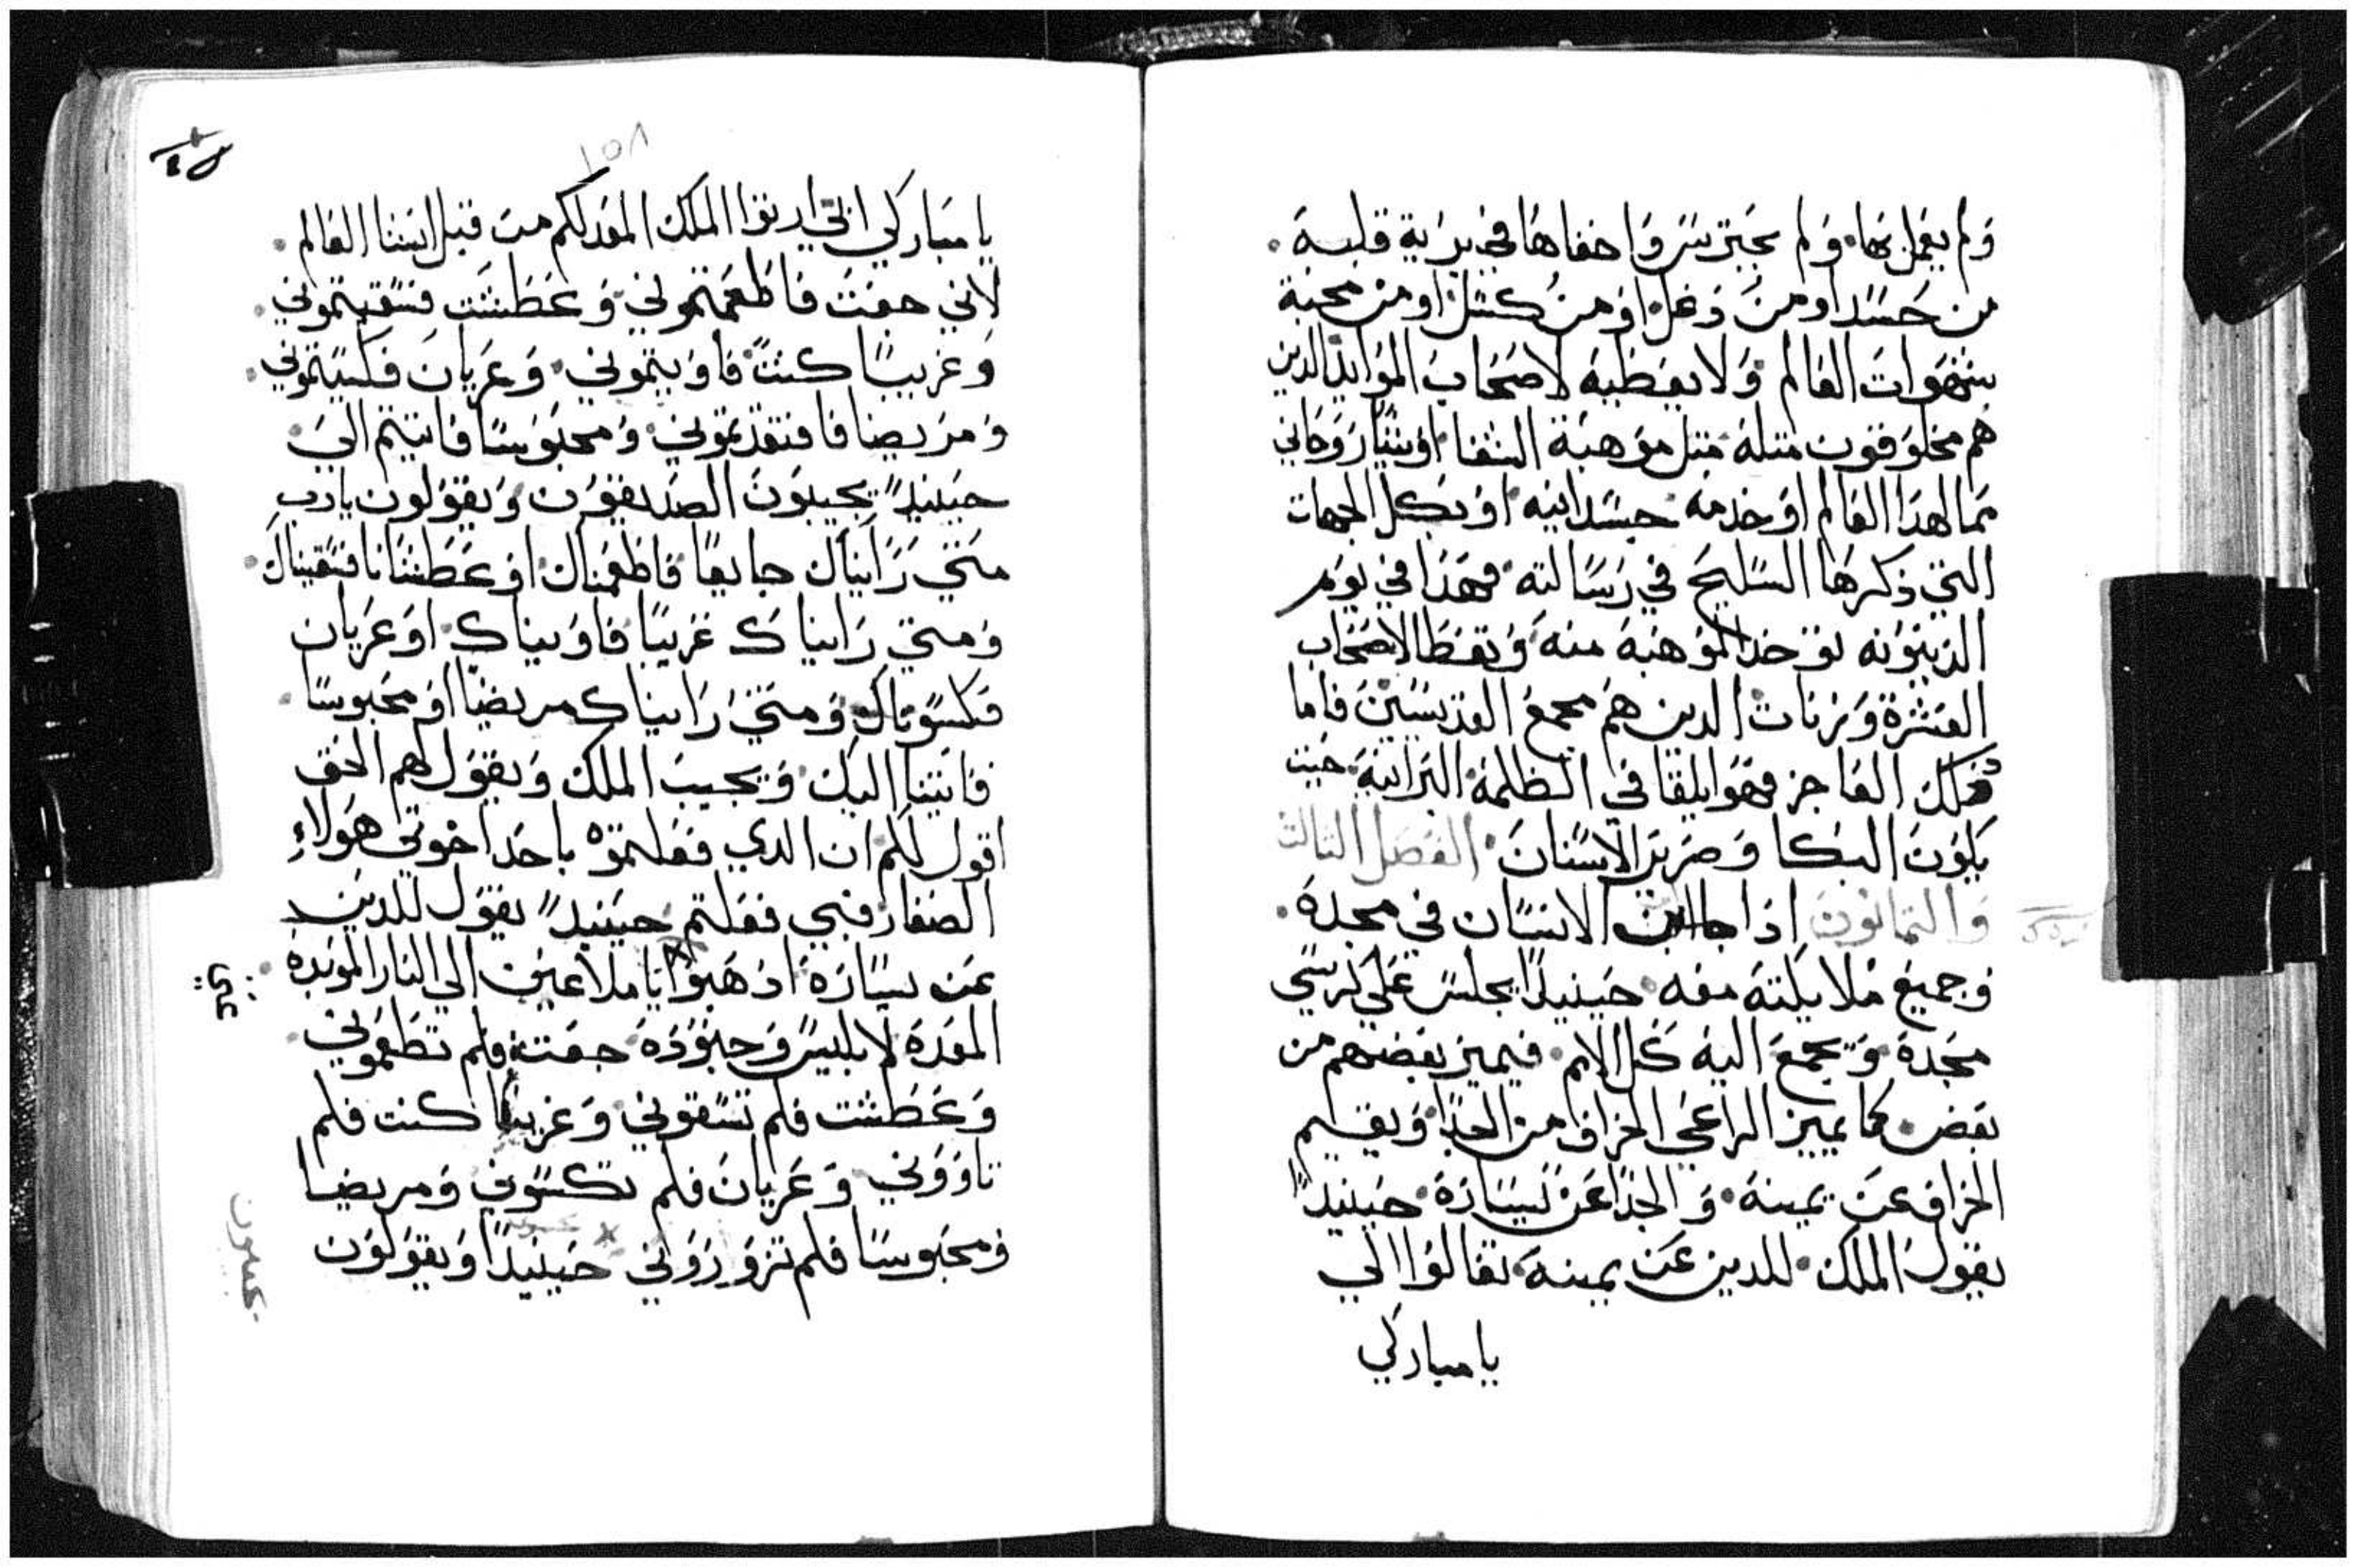 ولم يعمل بها. ولم يجيز بسر واخفاها في برية قلبه.
من حسدا ومن دغل او من كسل او من محبة
شهوات العالم. ولا يعطيه لاصحاب الموايد الدين
هم مخلوقون متله. متل موهبة الشفا. او شيا روحاني
مما لهدا العالم او خدمه جسدانيه. او بكل الجهات
التي دكرها السليح في رسالته. فهدا في يوم
الدينونه توخد الموهبه منه وتعطا لاصحاب
العشرة وزنات الدين هم مجمع القديسين فاما
دلك العاجز فهوا يلقا في الظلمة البرانية. حيت
يكون البكا وصرير الاسنان. الفصل التالت
والتمانون ادا جا ابن الانسان في مجده.
وجميع ملايكته معه. حينيدا يجلس علي كرسي
مجدة. ويجمع اليه كل الامم. فيميز بعضهم من
بعض. كما يميز الراعي الخراف من الجدا. ويقيم
الخراف عن يمينه. والجدا عن يساره. حينيدا
يقول الملك. للدين عن يمينه. تعالوا الي
يا مباركي
٧٥٦
يا مباركي ابي ارتوا الملك المعد لكم من قبل انشا العالم.
لاني جعت فاطعمتموني. وعطشت فسقيتموني.
وغريبا كنت فاويتموني. وعريان فكسيتموني.
ومريضا فافتقدتموني. ومحبوسا فاتيتم الي.
حينيدا يجيبون الصديقون ويقولون يارب
متي رايناك جايعا فاطعمناك. او عطشانا فسقيناك.
ومتي رايناك غريبا فاويناك. او عريان
فكسوناك. ومتي رايناك مريضا او محبوسا.
فاتينا اليك. ويجيب الملك ويقول لهم الحق
اقول لكم ان الدي فعلتموه باحد اخوتي هولاء
الصغار فبي فعلتم. حينيدا يقول للدين
عن يساره ادهبوا يا ملاعين الي النار الموبده.
المعده لابليس وجنوده. جعت فلم تطعموني.
وعطشت فلم تسقوني. وغريبا كنت فلم
تاووني. وعريان فلم تكسوني ومريضا
ومحبوسا فلم تزوروني حينيدا ويقولون
عني
يجيبون